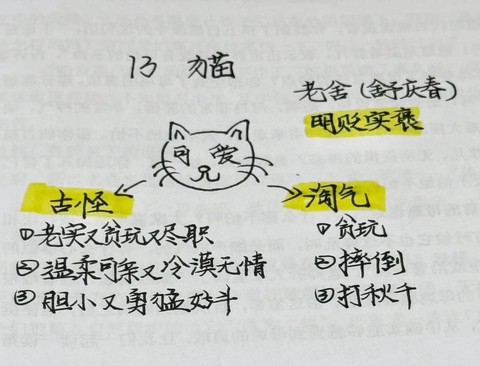 13 猫
老舍(舒庆春)
明贬实褒
可 爱
古怪
①老实又贪玩又尽职
②温柔可亲又冷漠无情
③胆小又勇猛好斗
淘气
①贪玩
②摔倒
③打秋千